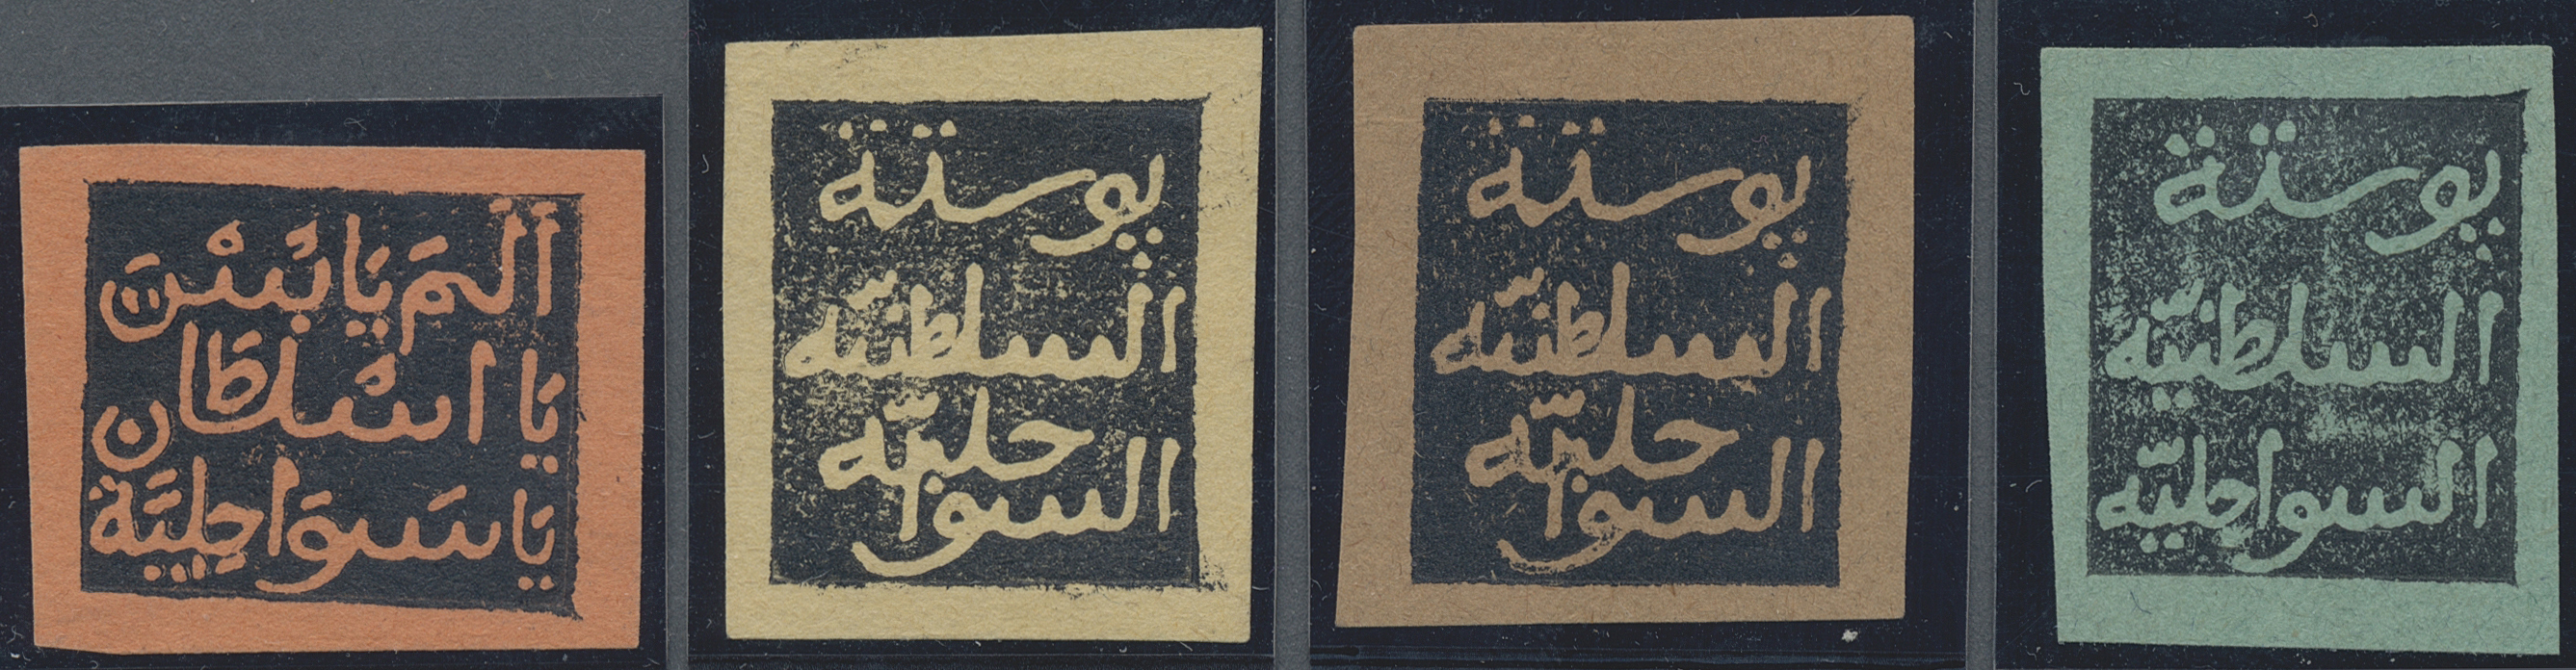 أَلَمَ يَا بُسْتَ
يَا اسْلطَان
يَا سَوَاحِلِيَّة
پوستة
السلطنيّه
السواحليّه
پوستة
السلطنيّه
السواحليّه
پوستة
السلطنيّه
السواحليّه